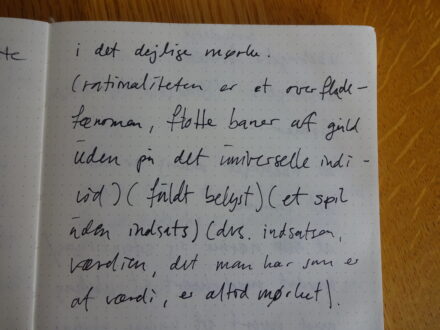 te
i det dejlige mørke.
(rationaliteten er et overflade-
fænomen, flotte baner af guld
uden på det universelle indi-
vid) (fuldt belyst) (et spil
uden indsats) (dvs. indsatsen,
værdien, det man har som er
af værdi, er altid mørket).